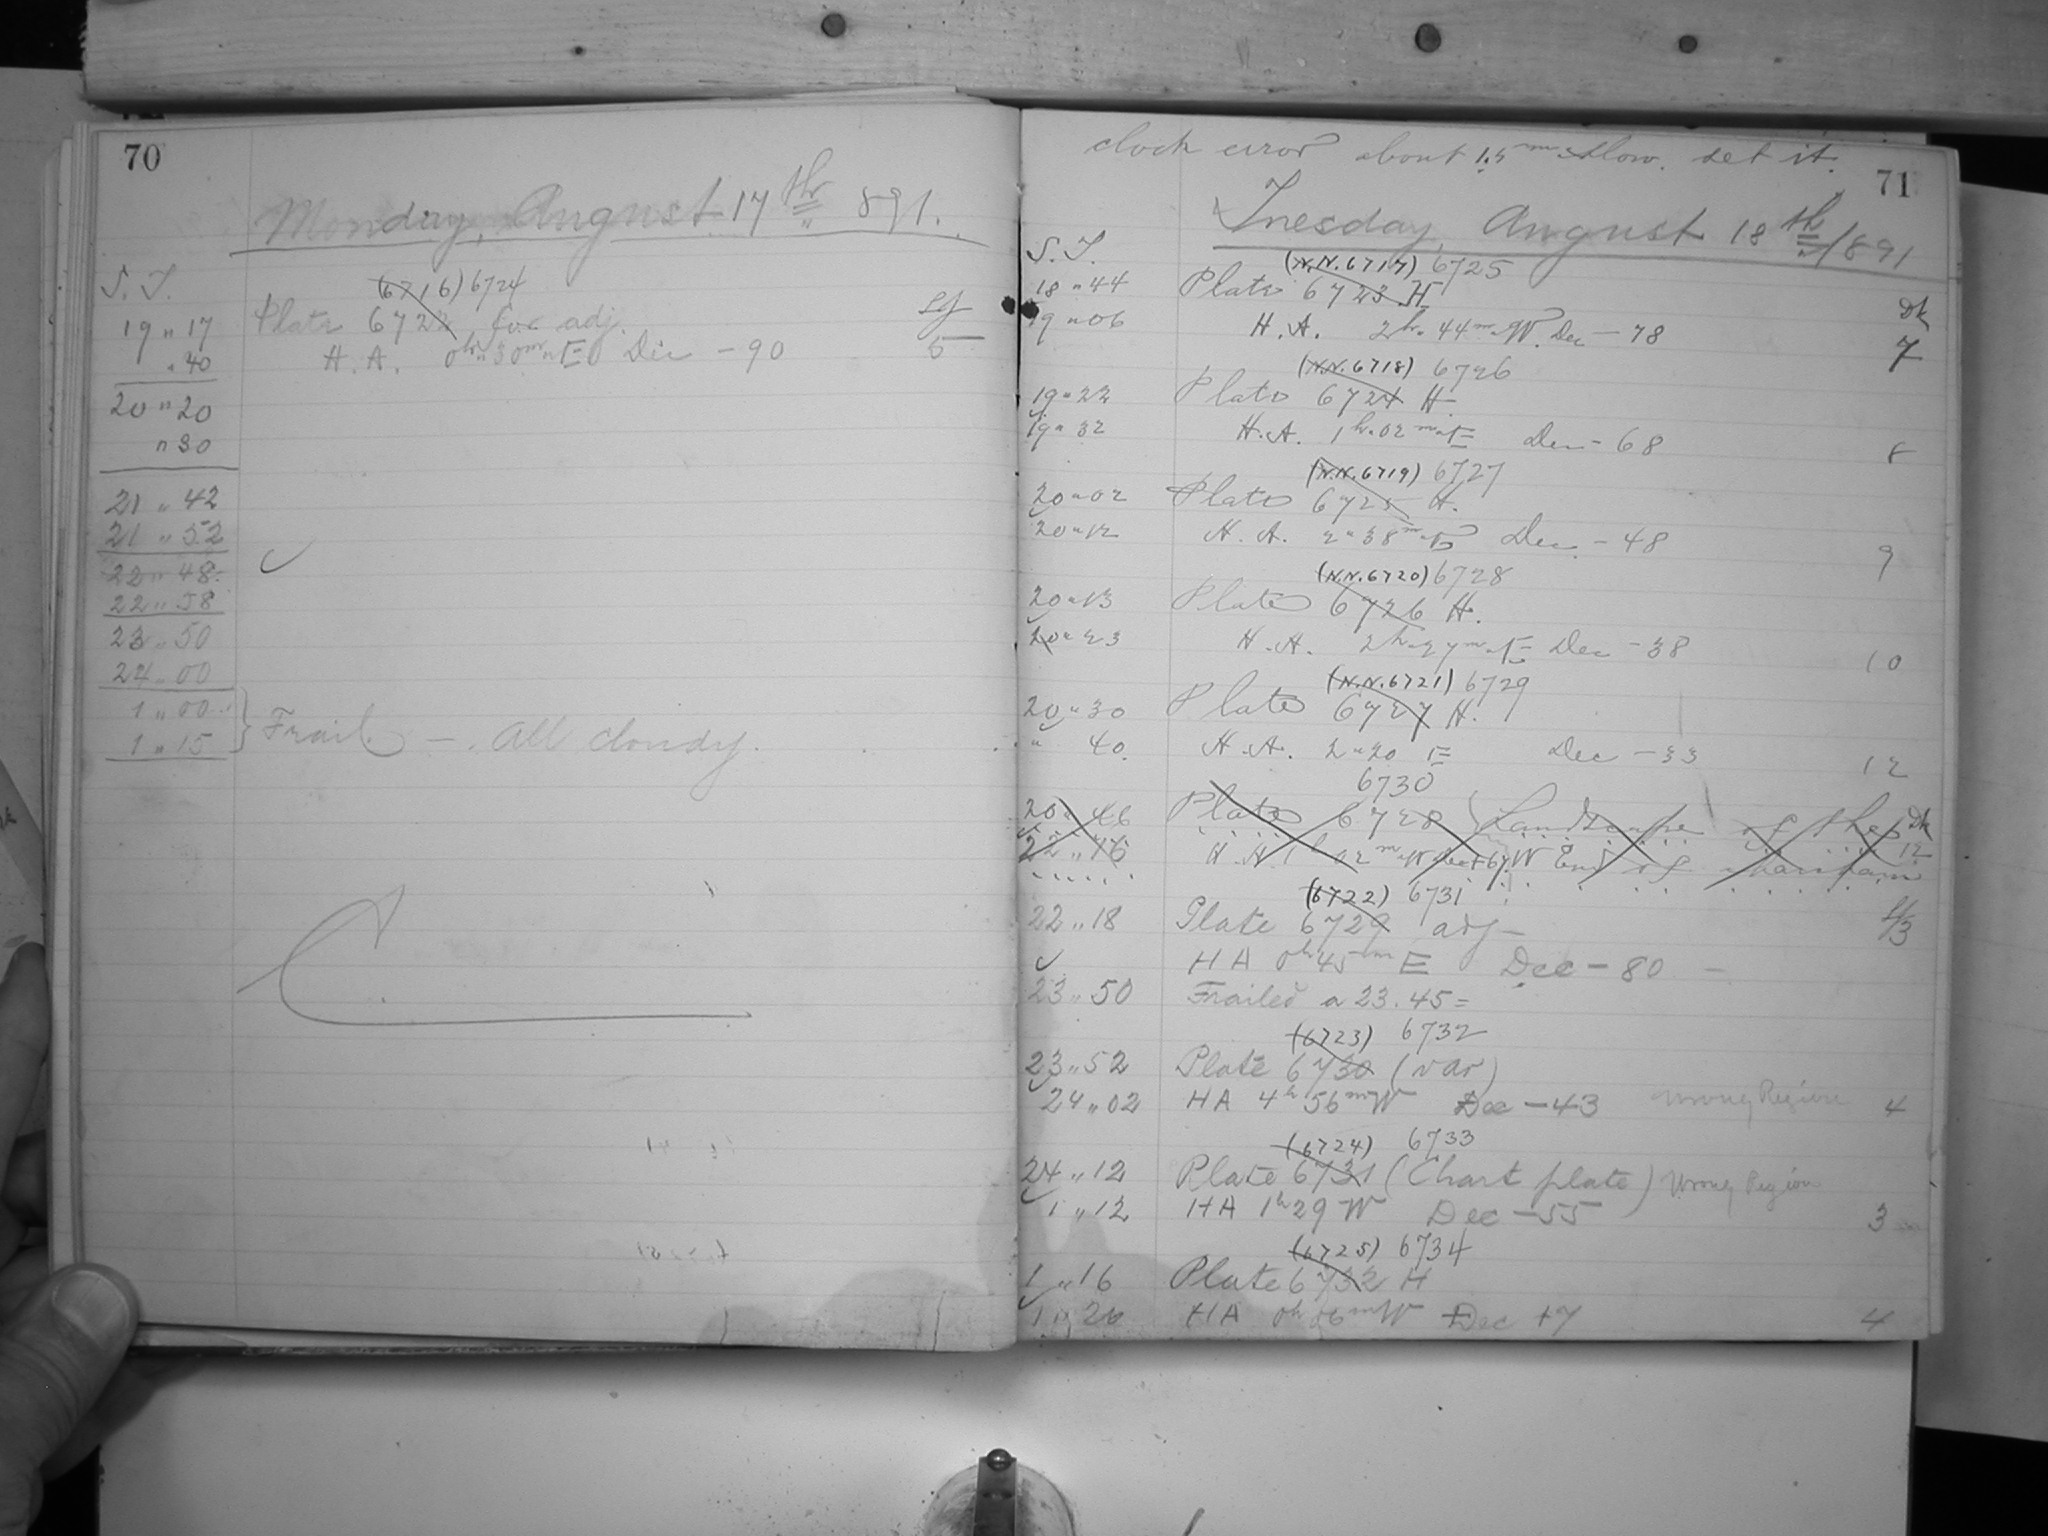 70
Monday, August 17th 1891.
S. T.
(6716) 6724
19 " 17 Plate 6722 for adj.
" 40 H. A. 0h " 30m " E Dec - 90 5
20 " 20
" 30
21 " 42
21 " 52
22 " 48
22 " 58
23 " 50
24 " 00
1 " 00
1 " 15 } Trail — All cloudy.
clock error about 1.5m slow. set it.
71
Tuesday, August 18th 1891
S. T.
(N.N. 6717) 6725
18 " 44 Plate 6723 H
19 " 06 H. A. 2h " 44m " W. Dec - 78 7
(N.N. 6718) 6726
19 " 22 Plate 6724 H.
19 " 32 H. A. 1h " 02m " E Dec - 68 8
(N.N. 6719) 6727
20 " 02 Plate 6725 H.
20 " 12 H. A. 2 " 38m " E Dec. - 48 9
(N.N. 6720) 6728
20 " 13 Plate 6726 H.
20 " 23 H. A. 2h " 27m " E Dec - 38 10
(N.N. 6721) 6729
20 " 30 Plate 6727 H.
" 40. H. A. 2 " 20 E Dec - 33 12
6730
20 " 46 Plate 6728 Landscape of the
22 " 16 H. A. 1h 02m W Dec + 67 W End of 12
(6722) 6731
22 " 18 Plate 6729 adj — 3
H A 0h 45m E Dec - 80 —
23 " 50 Trailed a 23. 45 =
(6723) 6732
23 " 52 Plate 6730 (var)
24 " 02 HA 4h 56m W Dec - 43 Wrong Region 4
(6724) 6733
24 " 12 Plate 6731 (Chart plate) Wrong Region
1 " 12 HA 1h 29 W Dec - 55 3
(6725) 6734
1 " 16 Plate 6732 H
1 " 26 HA 0h 06m W Dec + 7 4